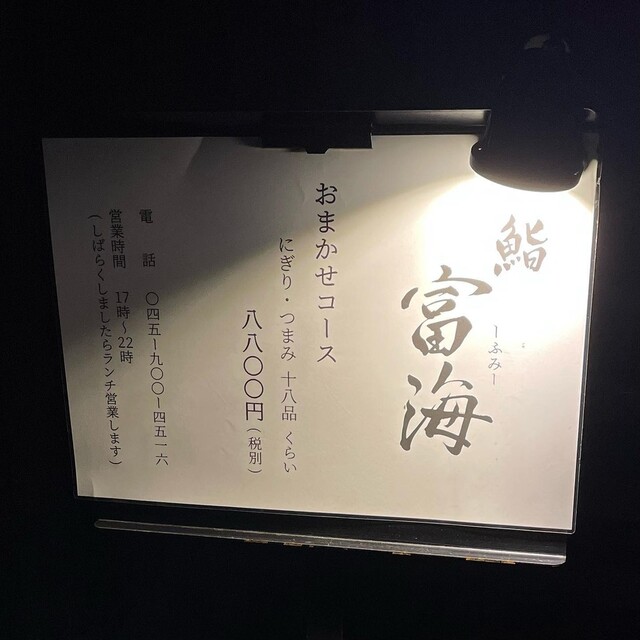 鮨
富海
ーふみー
おまかせコース
にぎり・つまみ 十八品 くらい
八八〇〇円(税別)
電話 〇四五ー九〇〇ー四五一六
営業時間 17時～22時
(しばらくしましたらランチ営業します)